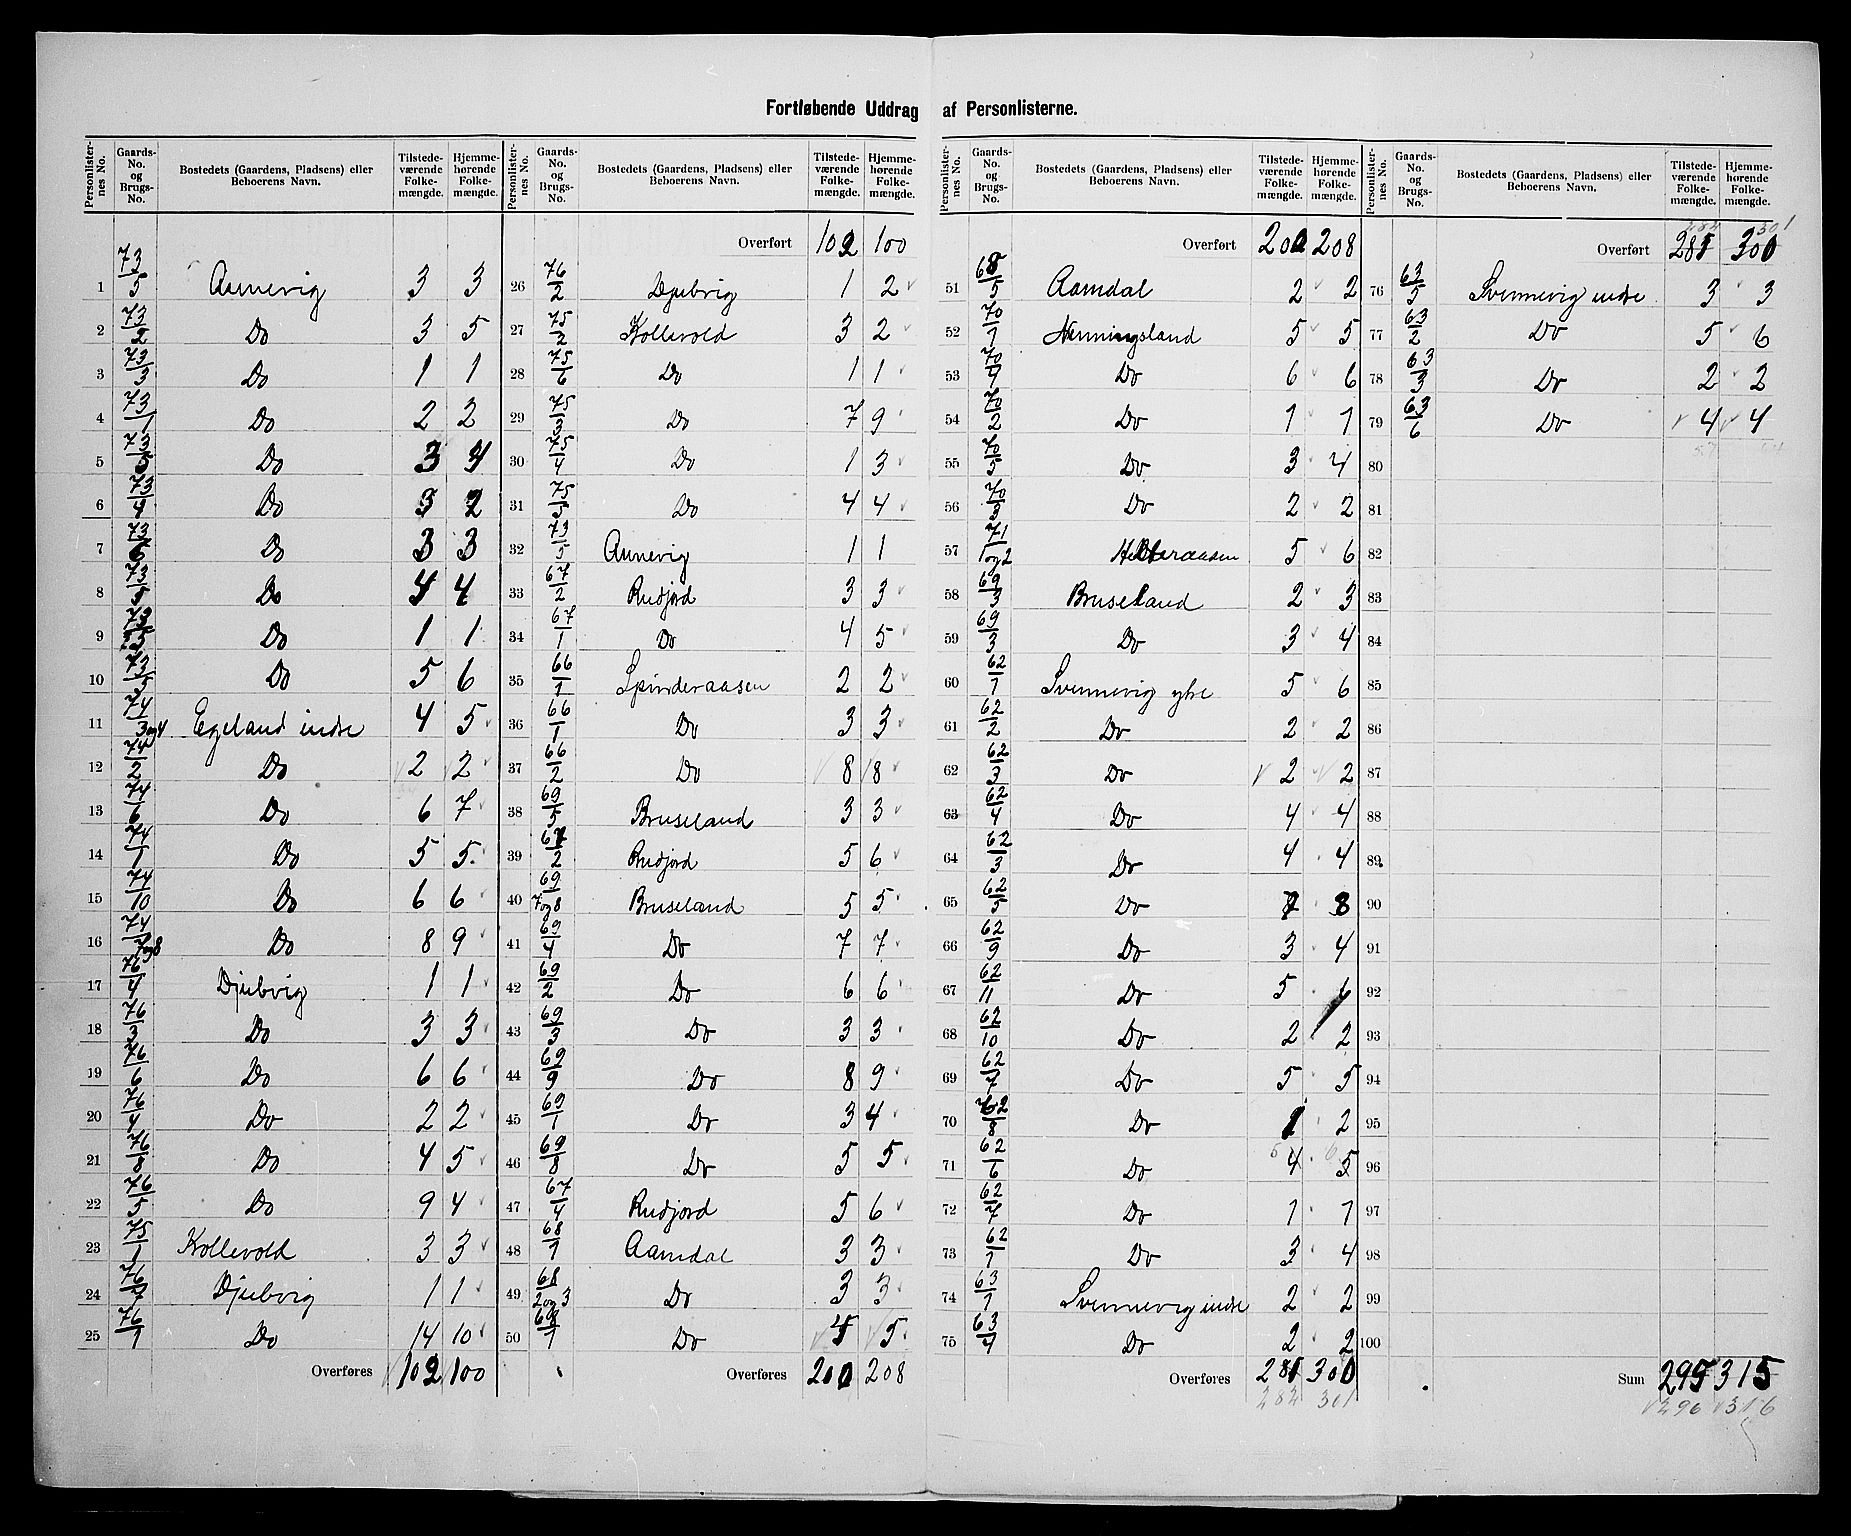 Fortløbende Uddrag af Personlisterne.
Personlister-nes No. Gaards-No. og Brugs-No. Bostedets (Gaardens, Pladsens) eller Beboerens Navn. Tilstede-værende Folke-mængde. Hjemme-hørende Folke-mængde.
1 73/5 Aunevig 3 3
2 73/2 Do 3 5
3 73/3 Do 1 1
4 73/1 Do 2 2
5 Do 3 4
6 73/4 Do 3 2
7 Do 3 3
8 Do 4 4
9 Do 1 1
10 Do 5 6
11 74/3og4 Egeland indre 4 5
12 74/2 Do 2 2
13 74/6 Do 6 7
14 74/1 Do 5 5
15 74/10 Do 6 6
16 74/7og8 Do 8 9
17 76/4 Djubvig 1 1
18 76/3 Do 3 3
19 76/6 Do 6 6
20 76/4 Do 2 2
21 76/8 Do 4 5
22 76/5 Do 9 4
23 75/1 Kollevold 3 3
24 76/7 Djubvig 1 1
25 76/1 Do 14 10
Overføres 102 100
Personlister-nes No. Gaards-No. og Brugs-No. Bostedets (Gaardens, Pladsens) eller Beboerens Navn. Tilstede-værende Folke-mængde. Hjemme-hørende Folke-mængde.
Overført 102 100
26 76/2 Djubvig 1 2
27 75/2 Kollevold 3 2
28 75/6 Do 1 1
29 75/3 Do 7 9
30 75/4 Do 1 3
31 75/5 Do 4 4
32 73/5 Aunevig 1 1
33 67/2 Rudjord 3 3
34 67/1 Do 4 5
35 66/1 Spinderaasen 2 2
36 66/1 Do 3 3
37 66/2 Do 8 8
38 69/5 Bruseland 3 3
39 67/2 Rudjord 5 6
40 69/7og8 Bruseland 5 5
41 69/4 Do 7 7
42 69/2 Do 6 6
43 69/3 Do 3 3
44 69/9 Do 8 9
45 69/1 Do 3 4
46 69/8 Do 5 5
47 67/4 Rudjord 5 6
48 68/1 Aamdal 3 3
49 68/2og3 Do 3 3
50 68/1 Do 5
Overføres 200 208
Personlister-nes No. Gaards-No. og Brugs-No. Bostedets (Gaardens, Pladsens) eller Beboerens Navn. Tilstede-værende Folke-mængde. Hjemme-hørende Folke-mængde.
Overført 200 208
51 68/5 Aamdal 2 2
52 70/1 Henningsland 5 5
53 70/4 Do 6 6
54 70/2 Do 1 1
55 70/5 Do 3 4
56 70/3 Do 2 2
57 71/1og2 5 6
58 69/3 Bruseland 2 3
59 69/3 Do 3 4
60 62/1 Svennevig ytre 5 6
61 62/2 Do 2 2
62 62/3 Do 2 2
63 62/4 Do 4 4
64 62/3 Do 4 4
65 62/5 Do 7 8
66 62/9 Do 3 4
67 62/11 Do 5 6
68 62/10 Do 2 2
69 62/7 Do 5 5
70 62/8 Do 1 2
71 62/6 Do 4 5
72 62/7 Do 1 1
73 62/1 Do 3 4
74 63/1 Svennevig indre 2 2
75 63/4 Do 2 2
Overføres 281 300
282 301
Personlister-nes No. Gaards-No. og Brugs-No. Bostedets (Gaardens, Pladsens) eller Beboerens Navn. Tilstede-værende Folke-mængde. Hjemme-hørende Folke-mængde.
282 301
Overført 281 300
76 63/5 Svennevig indre 3 3
77 63/2 Do 5 6
78 63/3 Do 2 2
79 63/6 Do 4 4
80
81
82
83
84
85
86
87
88
89
90
91
92
93
94
95
96
97
98
99
100
Sum 295 315
296 316